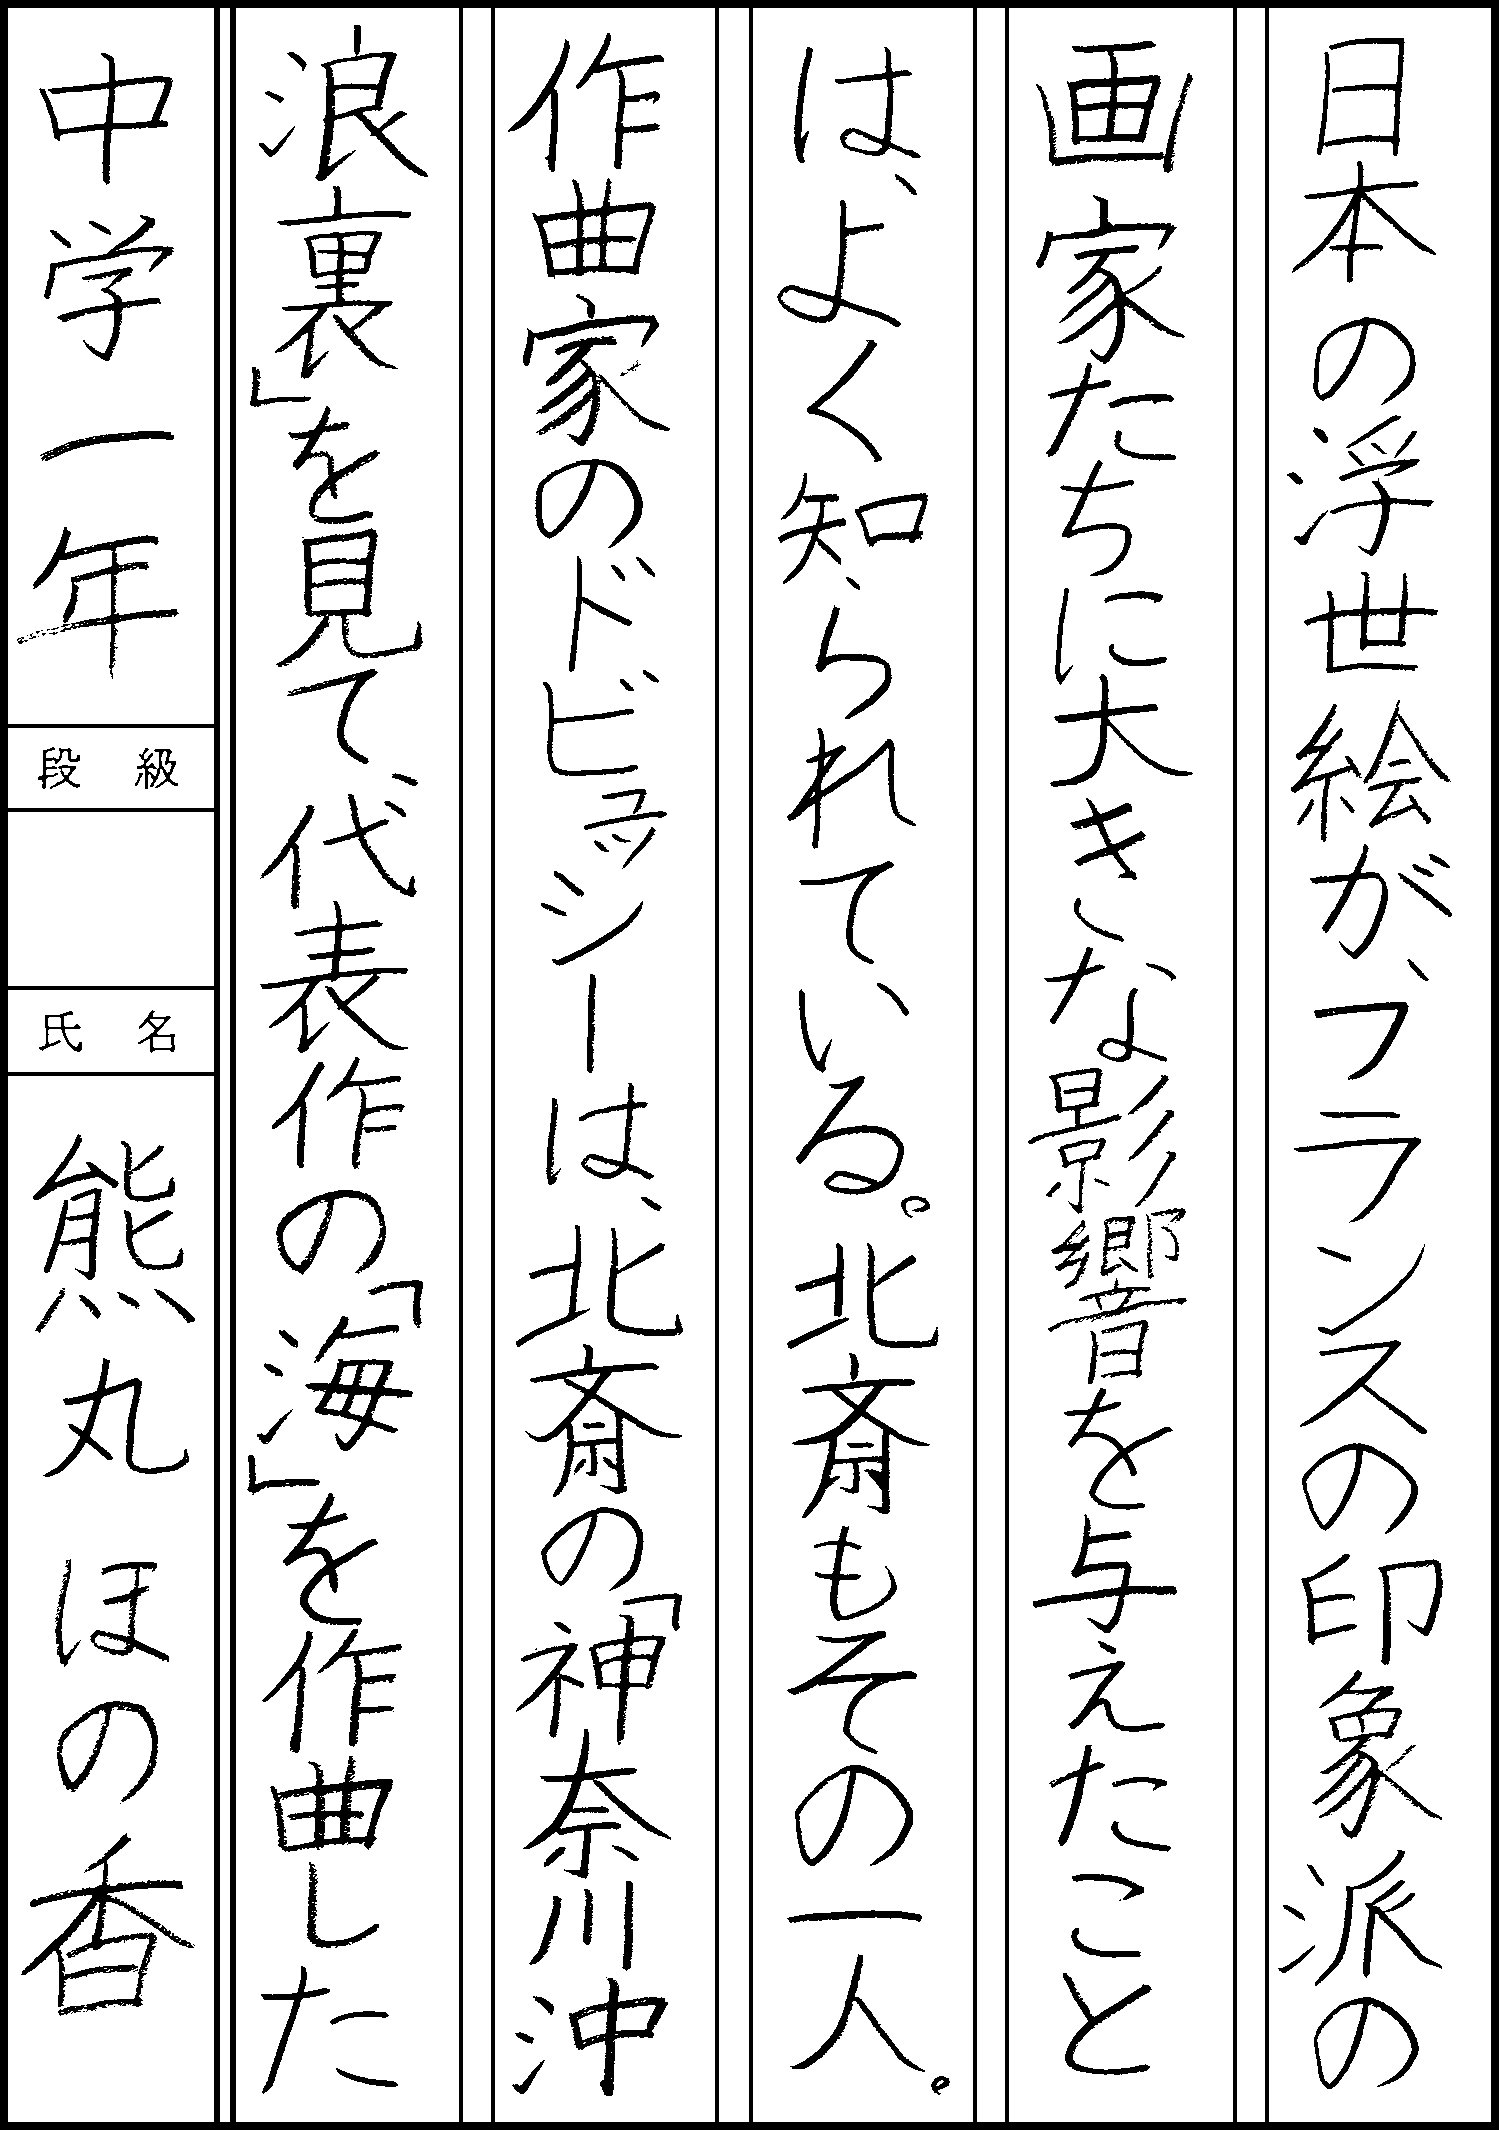 日本の浮世絵が、フランスの印象派の
画家たちに大きな影響を与えたこと
は、よく知られている。北斎もその一人。
作曲家のドビュッシーは、北斎の「神奈川沖
浪裏」を見て、代表作の「海」を作曲した
中学一年
段級
氏名
熊丸ほの香